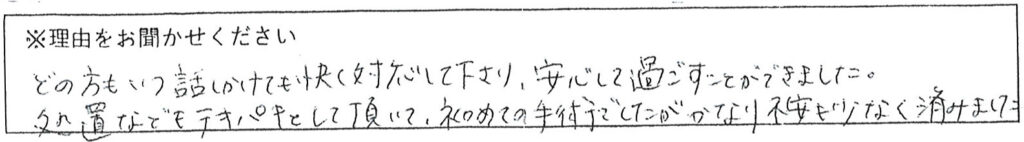 ※理由をお聞かせください
どの方もいつ話しかけても快く対応して下さり、安心して過ごすことができました。
処置などもテキパキとして頂いて、初めての手術でしたがかなり不安も少なく済みました